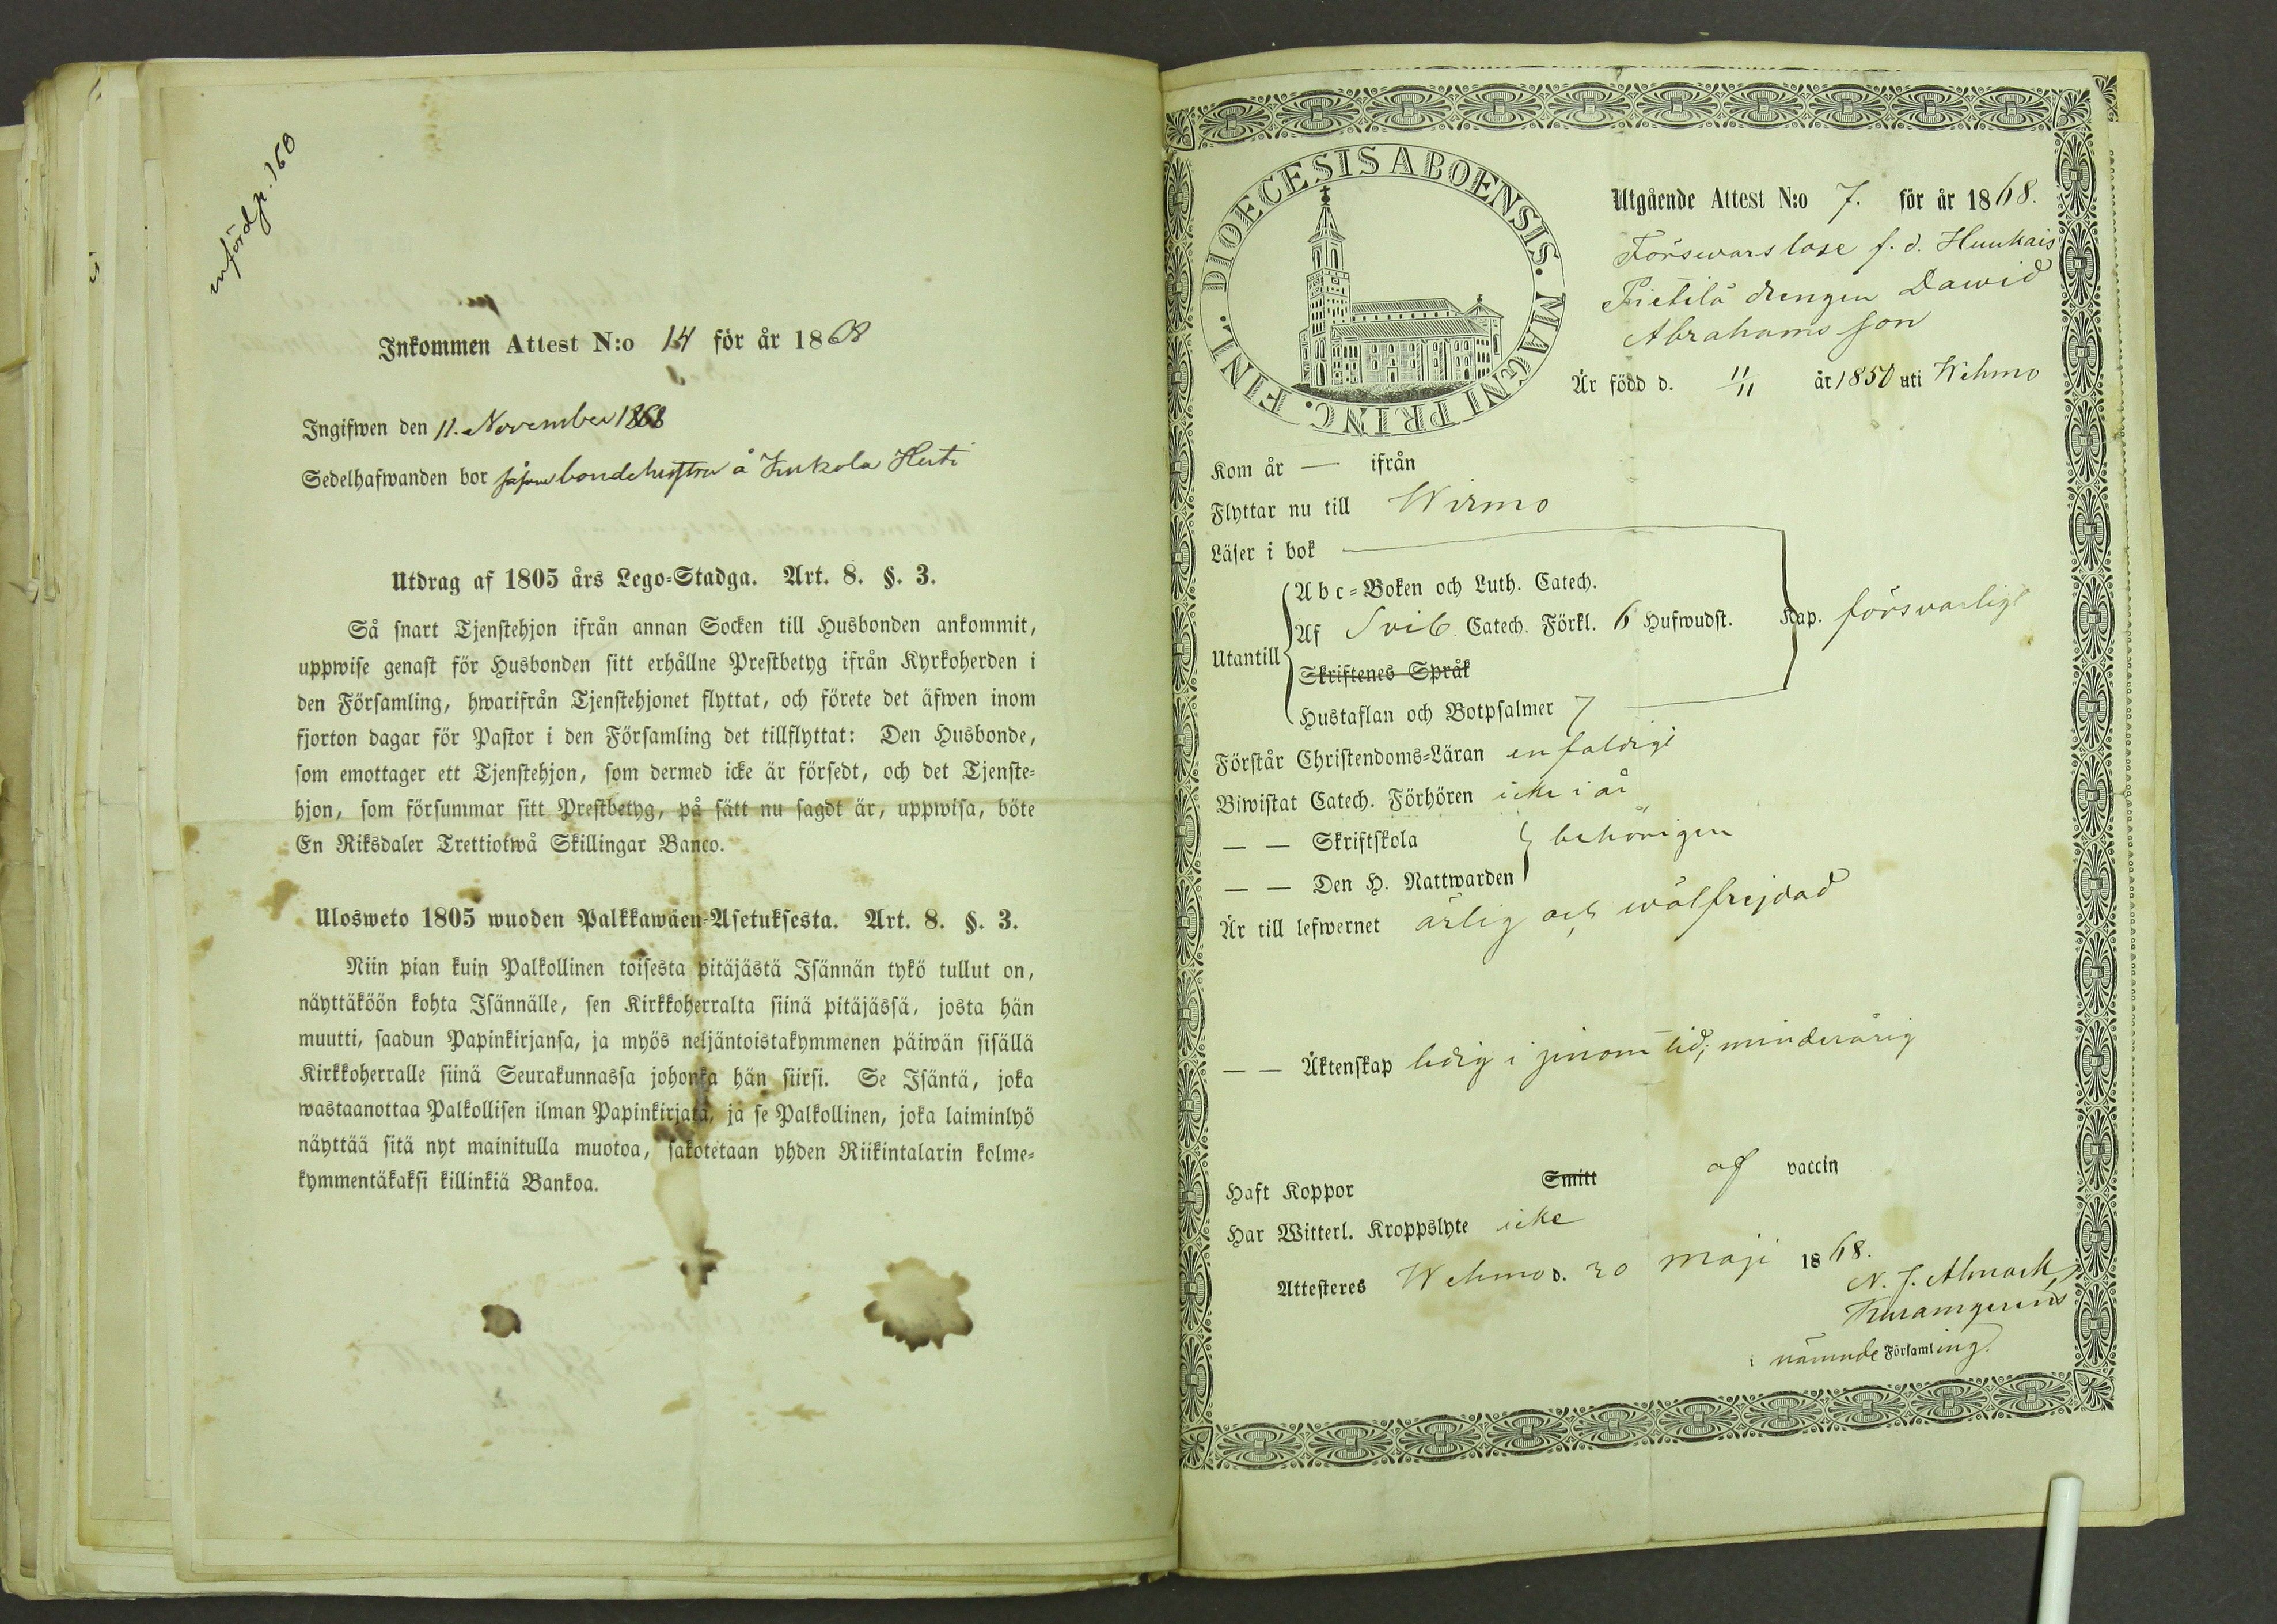 införd p. 160
Inkommen Attest N:o 14 för år 1868
Ingifwen den 11. November 1868
Sedelhafwanden bor såsom bondehustru å Junkola Heiti
Utdrag af 1805 års Lego-Stadga. Art. 8. §. 3.
Så snart Tjenstehjon ifrån annan Socken till Husbonden ankommit,
uppwise genast för Husbonden sitt erhållne Prestbetyg ifrån Kyrkoherden i
den Församling, hwarifrån Tjenstehjonet flyttat, och förete det äfwen inom
fjorton dagar för Pastor i den Församling det tillflyttat: Den Husbonde,
som emottager ett Tjenstehjon, som dermed icke är försedt, och det Tjenste-
hjon, som försummar sitt Prestbetyg, på sätt nu sagdt är, uppwisa, böte
En Riksdaler Trettiotwå Skillingar Banco.
Ulosweto 1805 wuoden Palkkawäen-Asetuksesta. Art. 8. §. 3.
Niin pian kuin Palkollinen toisesta pitäjästä Isännän tykö tullut on,
näyttäköön kohta Isännälle, sen Kirkkoherralta siinä pitäjässä, josta hän
muutti, saadun Papinkirjansa, ja myös neljäntoistakymmenen päiwän sisällä
Kirkkoherralle siinä Seurakunnassa johonka hän siirsi. Se Isäntä, joka
wastaanottaa Palkollisen ilman Papinkirjata, ja se Palkollinen, joka laiminlyö
näyttää sitä nyt mainitulla muotoa, sakotetaan yhden Riikintalarin kolme-
kymmentäkaksi killinkiä Bankoa.
DIOECESIS ABOENSIS. MAGNI PRINC. FINL.
Utgående Attest N:o 7. för år 1868.
Förswarslose f. d. Huukais
Pietilä drengen Dawid
Abrahams son
Är född d. 11/11 år 1850 uti Wehmo
Kom år — ifrån
Flyttar nu till Wirmo
Läser i bok
Abc-Boken och Luth. Catech.
Utantill Af Svib. Catech. Förkl. 6 Hufwudst. Kap. försvarligt
Skriftenes Språk
Hustaflan och Botpsalmer 7
Förstår Christendoms-Läran enfaldigt
Biwistat Catech. Förhören icke i år
— — Skriftskola behörigen
— — Den H. Nattwarden
Är till lefwernet ärlig och wälfrejdad
— — Äktenskap ledig i genom tid; minderårig
Haft Koppor Smitt af vaccin
Har Witterl. Kroppslyte icke
Attesteres Wehmo d. 20 Maji 1868.
N. J. Almark,
i nämnde Församling.